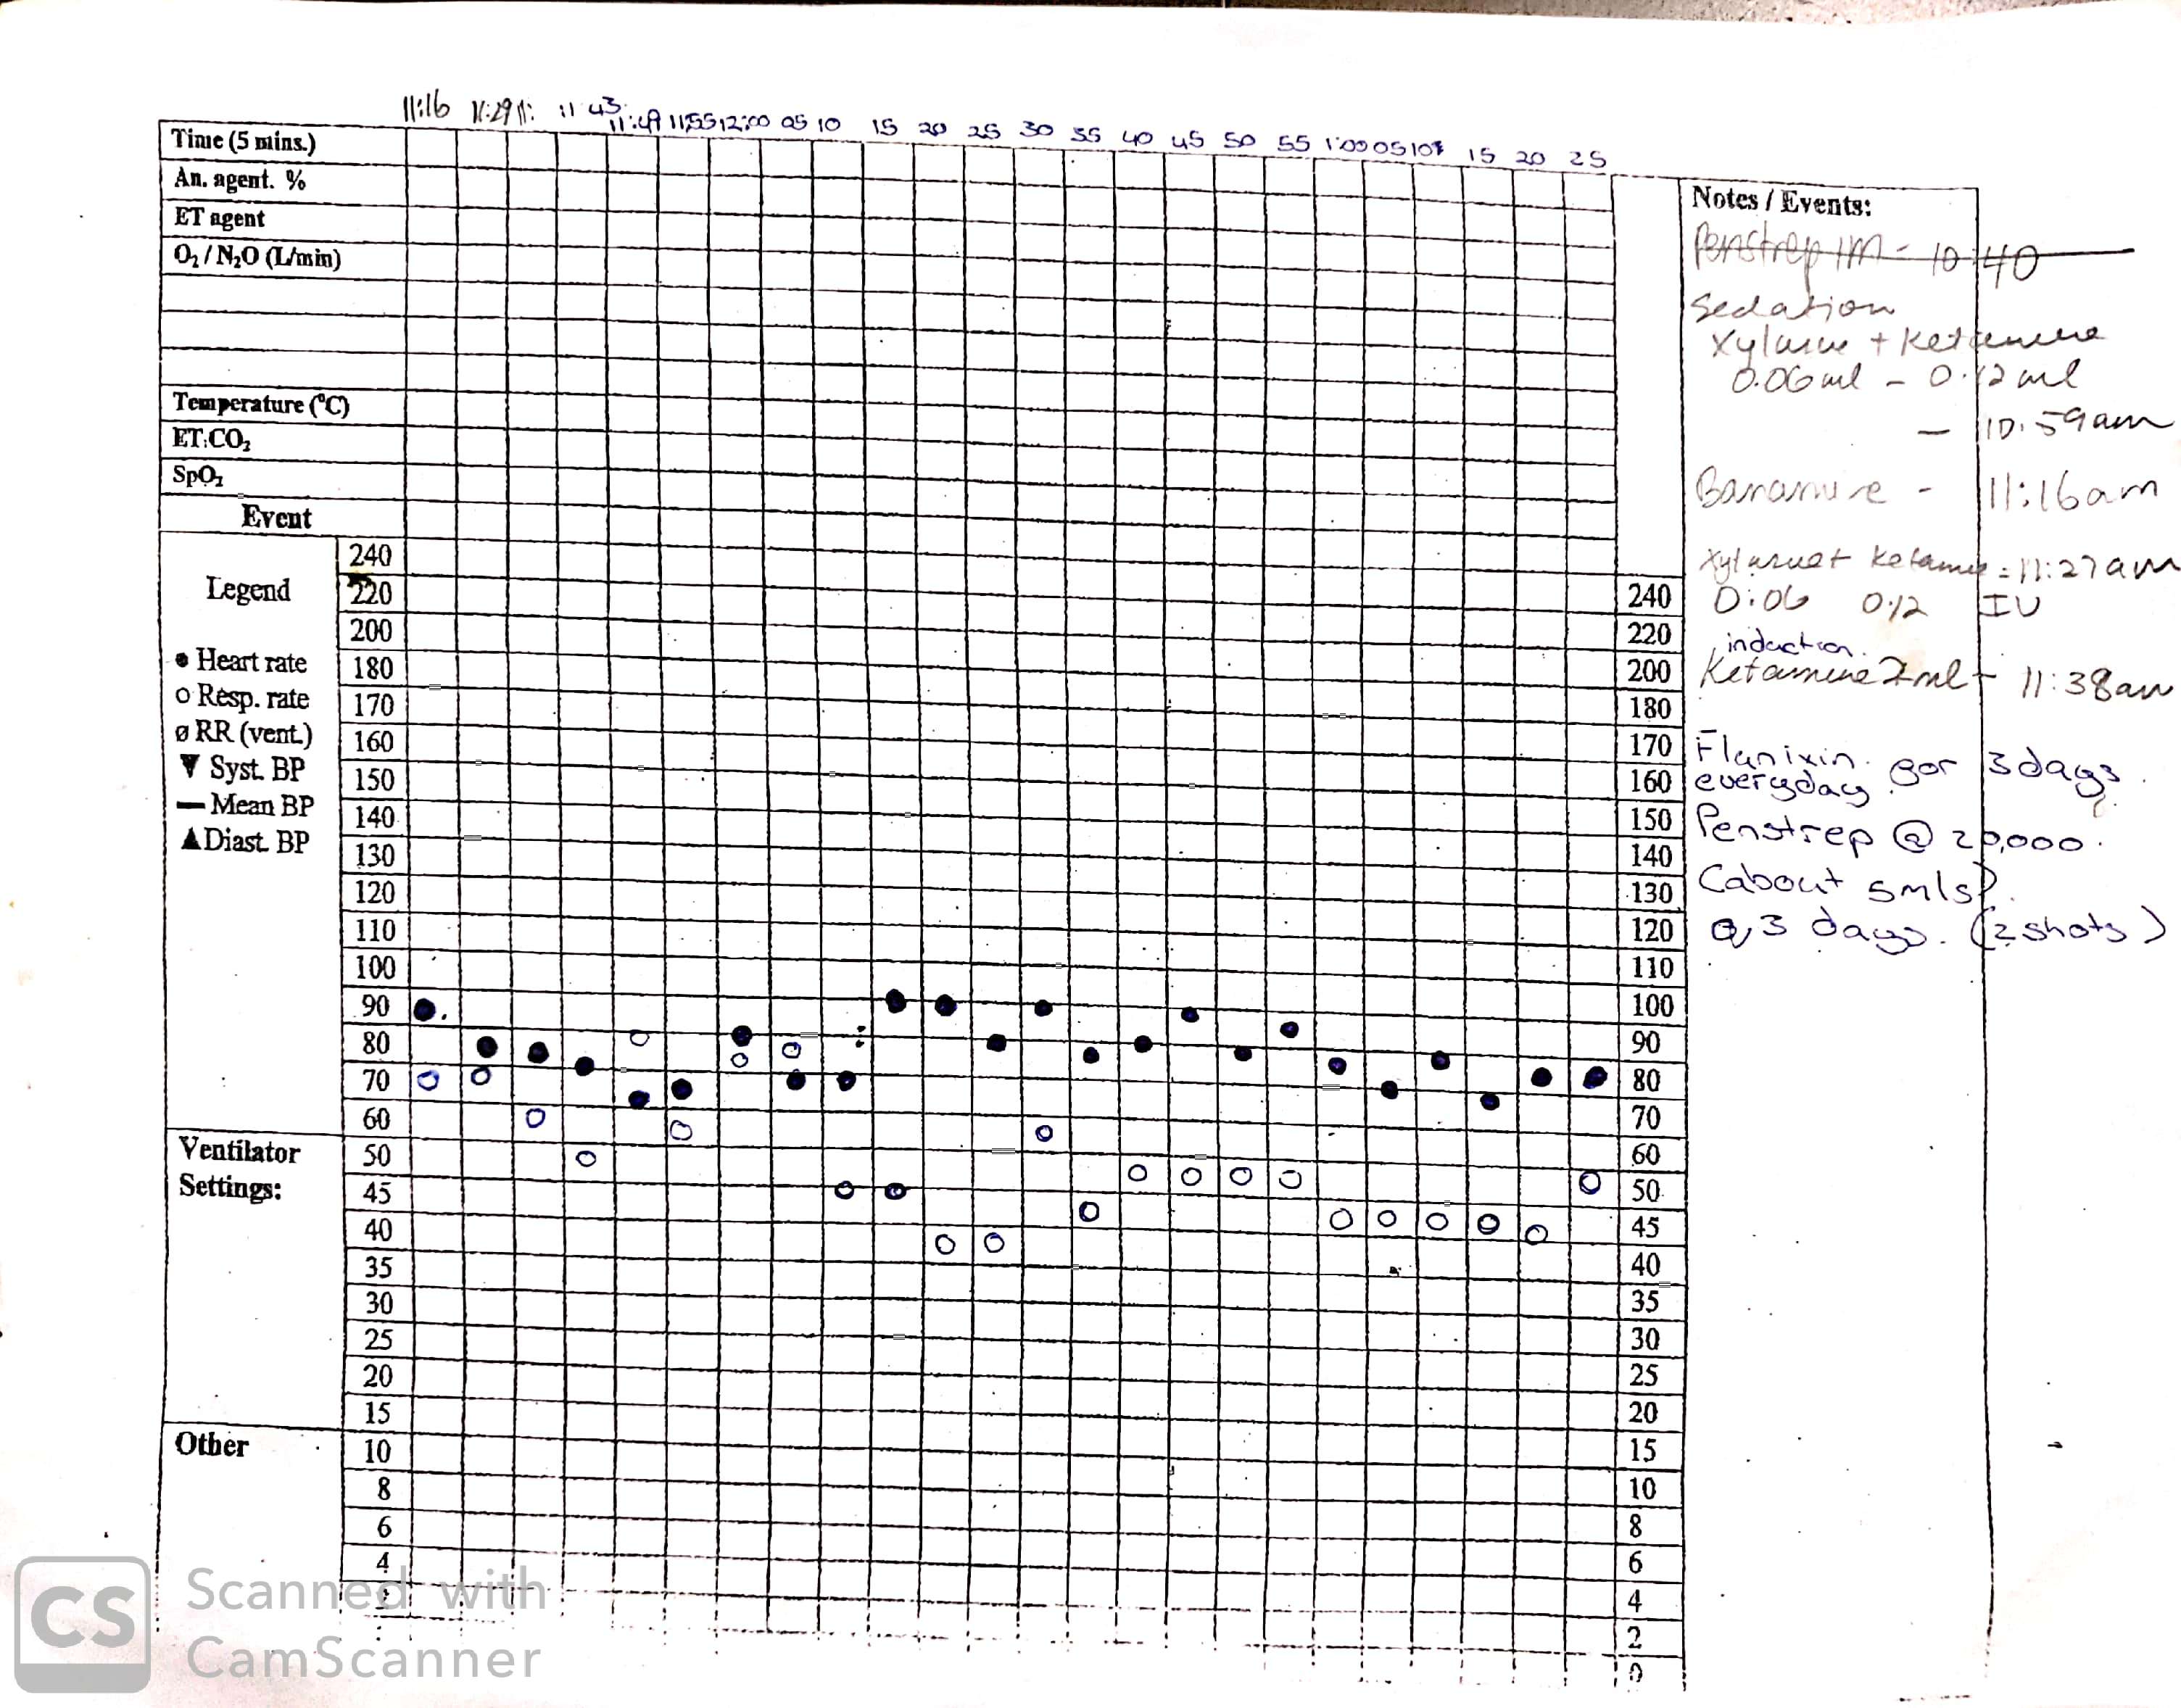 11:16 11:29 11: 11 43 11:49 11:55 12:00 05 10 15 20 25 30 35 40 45 50 55 1:00 05 10 15 20 25
Time (5 mins.)
An. agent. %
ET agent
O₂ / N₂O (L/min)
Temperature (°C)
ET.CO₂
SpO₂
Event
Legend
● Heart rate
○ Resp. rate
ø RR (vent.)
▼ Syst. BP
— Mean BP
▲ Diast. BP
Ventilator
Settings:
Other
240
220
200
180
170
160
150
140
130
120
110
100
90
80
70
60
50
45
40
35
30
25
20
15
10
8
6
4
240
220
200
180
170
160
150
140
130
120
110
100
90
80
70
60
50
45
40
35
30
25
20
15
10
8
6
4
2
0
Notes / Events:
Penstrep IM - 10:40
Sedation
Xylazine + Ketamine
0.06ml - 0.12ml
- 10.59am
Banamine - 11:16am
Xylazine + Ketamine = 11:27am
0:06 0.12 IV
induction.
Ketamine 2ml - 11:38am
Flunixin for 3 days.
everyday
Penstrep @ 20,000.
(about 5mls)
Q 3 days. (2 shots)
CS
Scanned with
CamScanner